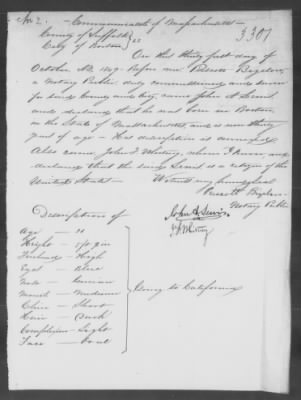 No 2. Commonwealth of Massachusetts
3301
County of Suffolk } ss
City of Boston
On this thirty first day of
October A.D. 1849. Before me Prescott Bigelow,
a Notary Public duly commissioned and sworn
for said County and City came John A. Lewis
and declared that he was born in Boston
in the State of Massachusetts, and is now thirty
years of age – His description is annexed
Also came John F. Whitney, whom I know and
declared that the said Lewis is a citizen of the
United States – Witness my hand & seal
Prescott Bigelow
Notary Public
John A. Lewis
J F Whitney
Description of
Age – "
Height – 5/10 in
Forehead – High
Eyes – Blue
Nose –
Mouth – Medium
Chin – Short
Hair – Dark
Complexion – Light
Face – Oval
Going to California